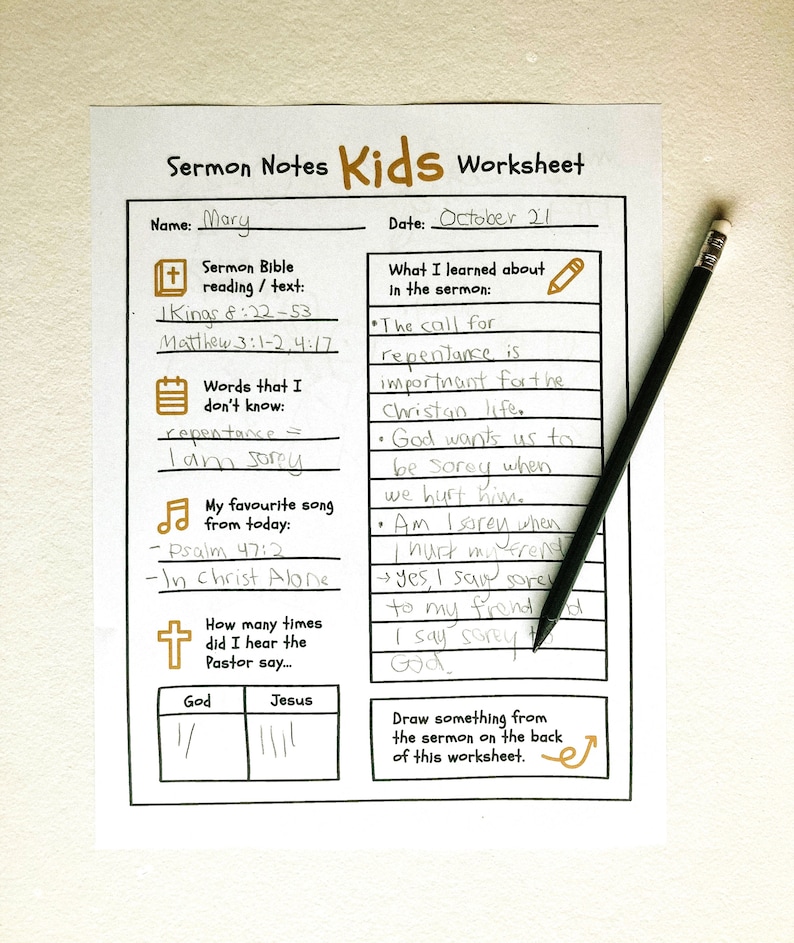 Sermon Notes Kids Worksheet
Name: Mary
Date: October 21
Sermon Bible
reading / text:
1 Kings 8:22-53
Matthew 3:1-2, 4:17
Words that I
don't know:
repentance =
I am sorey
My favourite song
from today:
- Psalm 47:2
- In Christ Alone
How many times
did I hear the
Pastor say...
God
Jesus
What I learned about
in the sermon:
• The call for
repentance is
importnant for the
Christan life.
• God wants us to
be sorey when
we hurt him.
• Am I sorey when
I hurt my frend
→ yes, I say sorey
to my frend
I say sorey to
God.
Draw something from
the sermon on the back
of this worksheet.